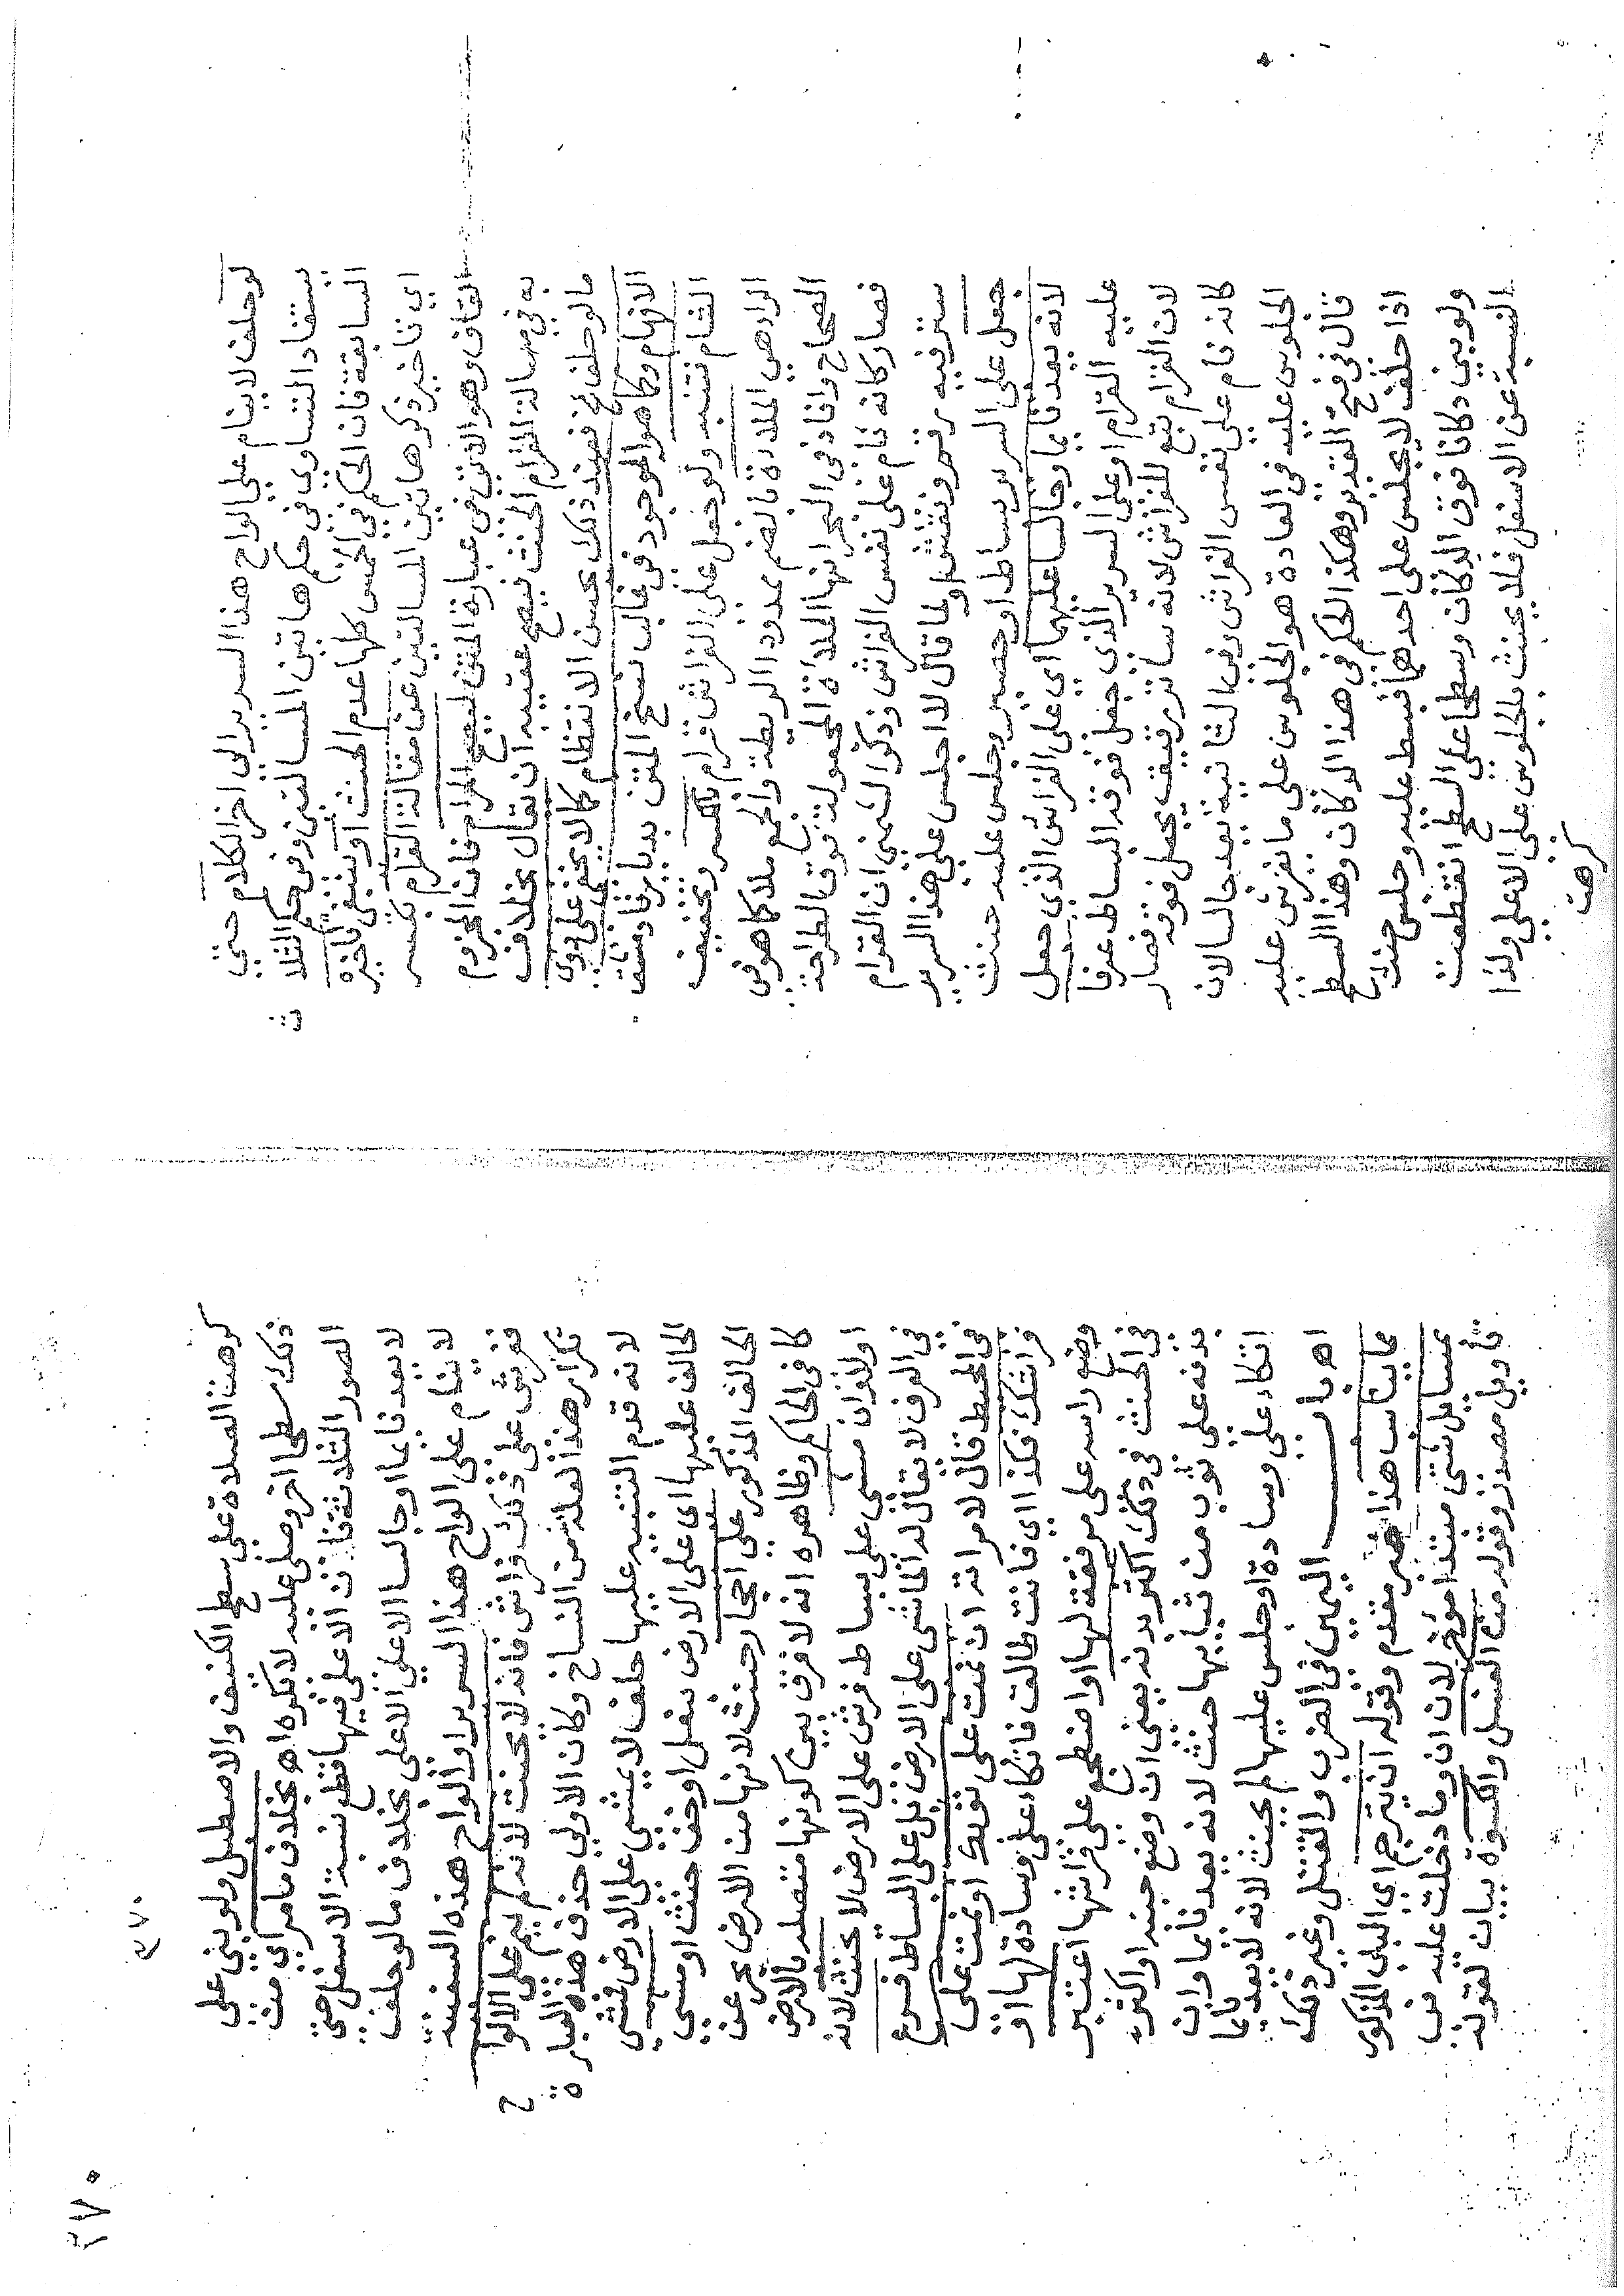 لو حلف لا ينام على الواح هذا السرير الى اخر الكلام حتى
يستفاد التساوي في حكم هاتين المسالتين وفي حكم الثلاث
السابقة فان الحكم في الخمس كلها عدم الحنث او ينبغي تاخيره
اي تاخير ذكر هاتين المسالتين عن مقالة القرام بكسر
القاف وهو الاتي في عبارة المتن ليصح المرام فان المجزوم
به في مسالة القرام الحنث فيصح عقيبه ان يقال بخلاف
ما لو حلف الخ فعند ذلك يحسن الانتظام كما لا يخفى على ذوي
الافهام وكما هو الموجود في غالب نسخ المتن بديار نا دمشق
الشام فتنبه ولو جعل على الفراش قرام بكسر وتخفيف
الرا هي الملاءة بالضم ممدودا الريطة والجمع ملاء كما هو في
الصحاح وافاد في البحر انها الملاءة المجعولة فوق الطراحة
فصار كانه نام على نفس الفراش وذكر الشمني ان القرام
ستر فيه رقم ونقش او لما قال لا اجلس على هذا السرير
جعل على السرير بساط او حصير وجلس عليه حنث
لانه يعد نايما وجالسا عليهما اي على الفراش الذي جعل
عليه القرام او على السرير الذي جعل فوقه البساط عرفا
لان القرام تبع للفراش لانه ساتر رقيق يجعل فوقه فصار
كانه نام على نفس الفراش وفي الثانية يعد جالسا لان
الجلوس عليه في العادة هو الجلوس على ما يفرش عليه
قال في فتح القدير وهكذا الحكم في هذا الدكان وهذا السطح
اذا حلف لا يجلس على احدهما فبسط عليه وجلس حنث
ولو بنى دكانا فوق الدكان وسطحا على السطح انقطعت
النسبة عن الاسفل فلا يحنث بالجلوس على الاعلى ولذا
كرهت
٢٧٠
٢٧٠
كرهت الصلاة على سطح الكنيف والاصطبل ولو بنى على
ذلك سطحا اخر وصلى عليه لا يكره اه بخلاف ما مر اي من
الصور الثلاثة فان الاعلى فيها قطع نسبة الاسفل حتى
لا يعد نايما او جالسا الاعلى الاعلى بخلاف ما لو حلف
لا ينام على الواح هذا السرير او الواح هذه السفينة
ففرش على ذلك فراش فانه لا يحنث لانه لم ينم على الالواح
تكرار هذا لعله من النساخ وكان الاولى حذف هذه العبارة
لانه قدم التنبيه عليها حلف لا يمشي على الارض فمشى
الحالف عليها اي على الارض بنعل او خف حنث او مشى
الحالف المذكور على احجار حنث لانها من الارض بحر عن
كافي الحاكم وظاهره انه لا فرق بين كونها متصلة بالارض
او لا وان مشى على بساط فرش على الارض لا يحنث لانه
في العرف لا يقال له الماشي على الارض بل على البساط فروع
في المحيط قال لامراته ان نمت على ثوبك او نمت على
فراشك فكذا اي فانت طالق فاتكا على وسادة لها او
وضع راسه على مرفقة لها او اضطجع على فراشها اعتبر
في الحنث في ذلك اكثر بدنه يعني ان وضع جنبه او اكثر
بدنه على ثوب من ثيابها حنث لانه يعد نايما وان
اتكا على وسادة او جلس عليها لم يحنث لانه لا يعد نايما
اه باب اليمين في الضرب والقتل وغير ذلك
مما يناسب هذا خبر مقدم وقوله ان يترجم اي الباب المذكور
بمسايل شتى مبتدا مؤخر لان ان وما دخلت عليه في
تاويل مصدر وقوله من الغسل والكسوة بيان لقوله